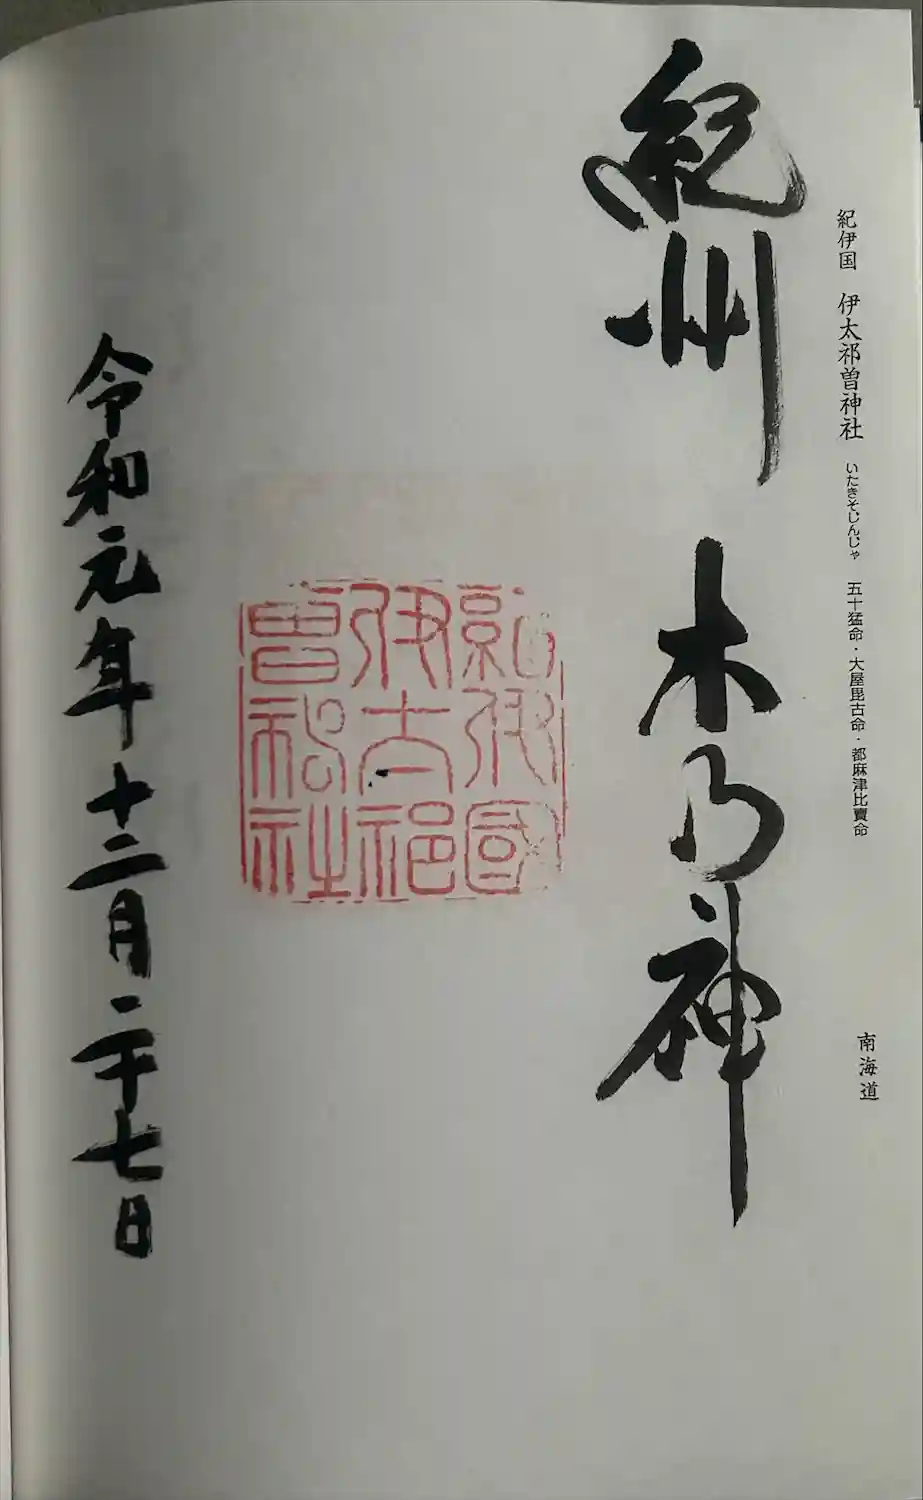 紀伊国 伊太祁曽神社 いたきそじんじゃ 五十猛命・大屋毘古命・都麻津比賣命 南海道
紀州 木乃神
紀伊國
伊太祁
曽神社
令和元年十二月二十七日